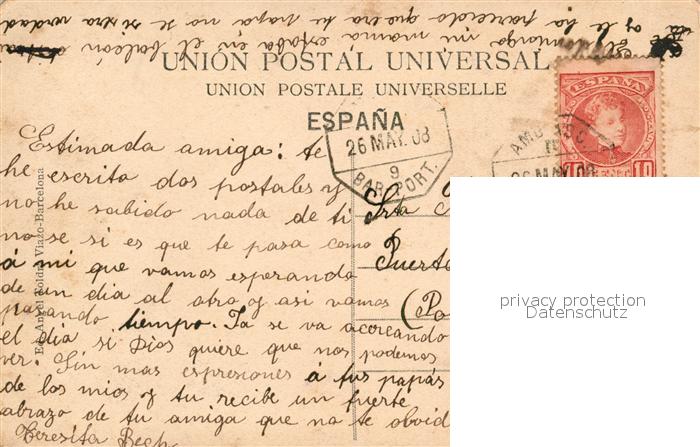 UNIÓN POSTAL UNIVERSAL
UNION POSTALE UNIVERSELLE
ESPAÑA
26 MAY. 08
9
BAR. PORT.
ESPAÑA
10
AMB
26 MAY 08
Ed. Angel Toldrá Viazo-Barcelona
mi mamá estaba en el balcón
y le ha parecido que era tu papa no se si sera verdad
Estimada amiga: te
he escrito dos postales y
no he sabido nada de ti
no se si es que te pasa como
á mi que vamos esperando
de un dia al otro y asi vamos
pasando tiempo. Ya se va acercando
el dia si Dios quiere que nos podemos
ver. Sin mas espresiones á tus papás
de los mios y tu recibe un fuerte
abrazo de tu amiga que no te olvid
Teresita Bech
Srta
Puerto
(Po
privacy protection
Datenschutz